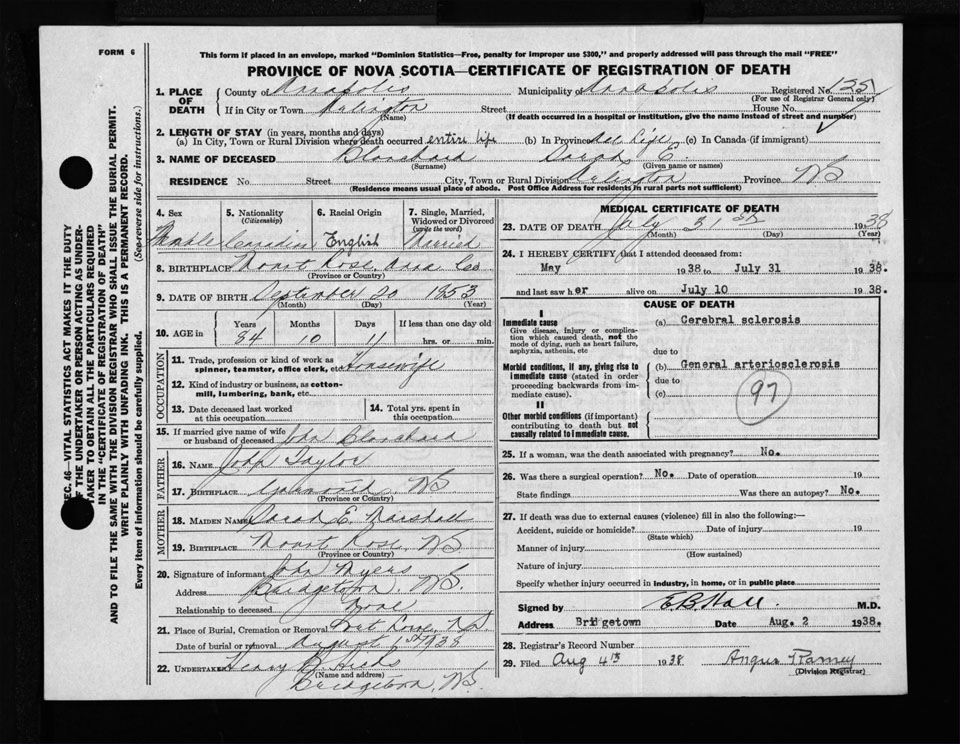 FORM 6
This form if placed in an envelope, marked "Dominion Statistics—Free, penalty for improper use $300," and properly addressed will pass through the mail "FREE"
PROVINCE OF NOVA SCOTIA—CERTIFICATE OF REGISTRATION OF DEATH
SEC. 46—VITAL STATISTICS ACT MAKES IT THE DUTY
OF THE UNDERTAKER OR PERSON ACTING AS UNDER-
TAKER TO OBTAIN ALL THE PARTICULARS REQUIRED
IN THE "CERTIFICATE OF REGISTRATION OF DEATH"
AND TO FILE THE SAME WITH THE DIVISION REGISTRAR WHO SHALL ISSUE THE BURIAL PERMIT.
WRITE PLAINLY WITH UNFADING INK. THIS IS A PERMANENT RECORD.
Every item of information should be carefully supplied. (See reverse side for instructions.)
1. PLACE OF DEATH County of Annapolis Municipality of Annapolis Registered No. 125
(For use of Registrar General only)
If in City or Town Arlington Street House No.
(Name) (If death occurred in a hospital or institution, give the name instead of street and number)
2. LENGTH OF STAY (in years, months and days)
(a) In City, Town or Rural Division where death occurred entire life (b) In Province All Life (c) In Canada (if immigrant)
3. NAME OF DECEASED Blanchard Sarah E.
(Surname) (Given name or names)
RESIDENCE No. Street City, Town or Rural Division Arlington Province NS
(Residence means usual place of abode. Post Office Address for residents in rural parts not sufficient)
4. Sex 5. Nationality (Citizenship) 6. Racial Origin 7. Single, Married, Widowed or Divorced (write the word)
Canadian English Married
8. BIRTHPLACE Mount Rose, Anna Co
(Province or Country)
9. DATE OF BIRTH September 20 1853
(Month) (Day) (Year)
10. AGE in Years Months Days If less than one day old
84 10 11 hrs. or min.
OCCUPATION
11. Trade, profession or kind of work as spinner, teamster, office clerk, etc. Housewife
12. Kind of industry or business, as cotton-mill, lumbering, bank, etc.
13. Date deceased last worked at this occupation
14. Total yrs. spent in this occupation
15. If married give name of wife or husband of deceased John Blanchard
FATHER
16. NAME John Taylor
17. BIRTHPLACE NS
(Province or Country)
MOTHER
18. MAIDEN NAME Sarah E. Marshall
19. BIRTHPLACE Mount Rose, NS
(Province or Country)
20. Signature of informant John Myers
Address Bridgetown NS.
Relationship to deceased None
21. Place of Burial, Cremation or Removal Port Lorne, N.S.
Date of burial or removal August 1938
22. UNDERTAKER Henry B. Hicks
(Name and address)
Bridgetown, NS.
MEDICAL CERTIFICATE OF DEATH
23. DATE OF DEATH July 31st 1938
(Month) (Day) (Year)
24. I HEREBY CERTIFY that I attended deceased from:
May 1938 to July 31 1938.
and last saw her alive on July 10 1938.
CAUSE OF DEATH
I
Immediate cause
Give disease, injury or complication which caused death, not the mode of dying, such as heart failure, asphyxia, asthenia, etc
(a) Cerebral sclerosis
due to
Morbid conditions, if any, giving rise to immediate cause (stated in order proceeding backwards from immediate cause).
(b) General arteriosclerosis
due to
(c)
97
II
Other morbid conditions (if important) contributing to death but not causally related to immediate cause.
25. If a woman, was the death associated with pregnancy? No.
26. Was there a surgical operation? No. Date of operation 19
State findings Was there an autopsy? No.
27. If death was due to external causes (violence) fill in also the following:—
Accident, suicide or homicide? Date of injury 19
(State which)
Manner of injury
(How sustained)
Nature of injury
Specify whether injury occurred in industry, in home, or in public place
Signed by E.B. Hall. M.D.
Address Bridgetown Date Aug. 2 1938.
28. Registrar's Record Number
29. Filed Aug 4th 1938 Angus Ramey
(Division Registrar)